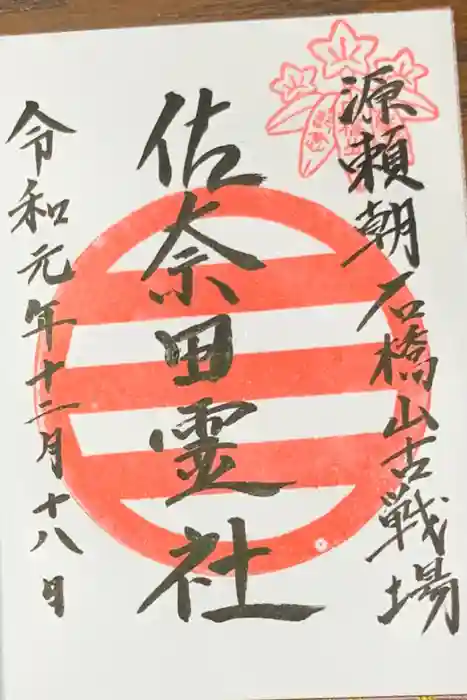 源頼朝石橋山古戦場
佐奈田霊社
令和元年十二月十八日